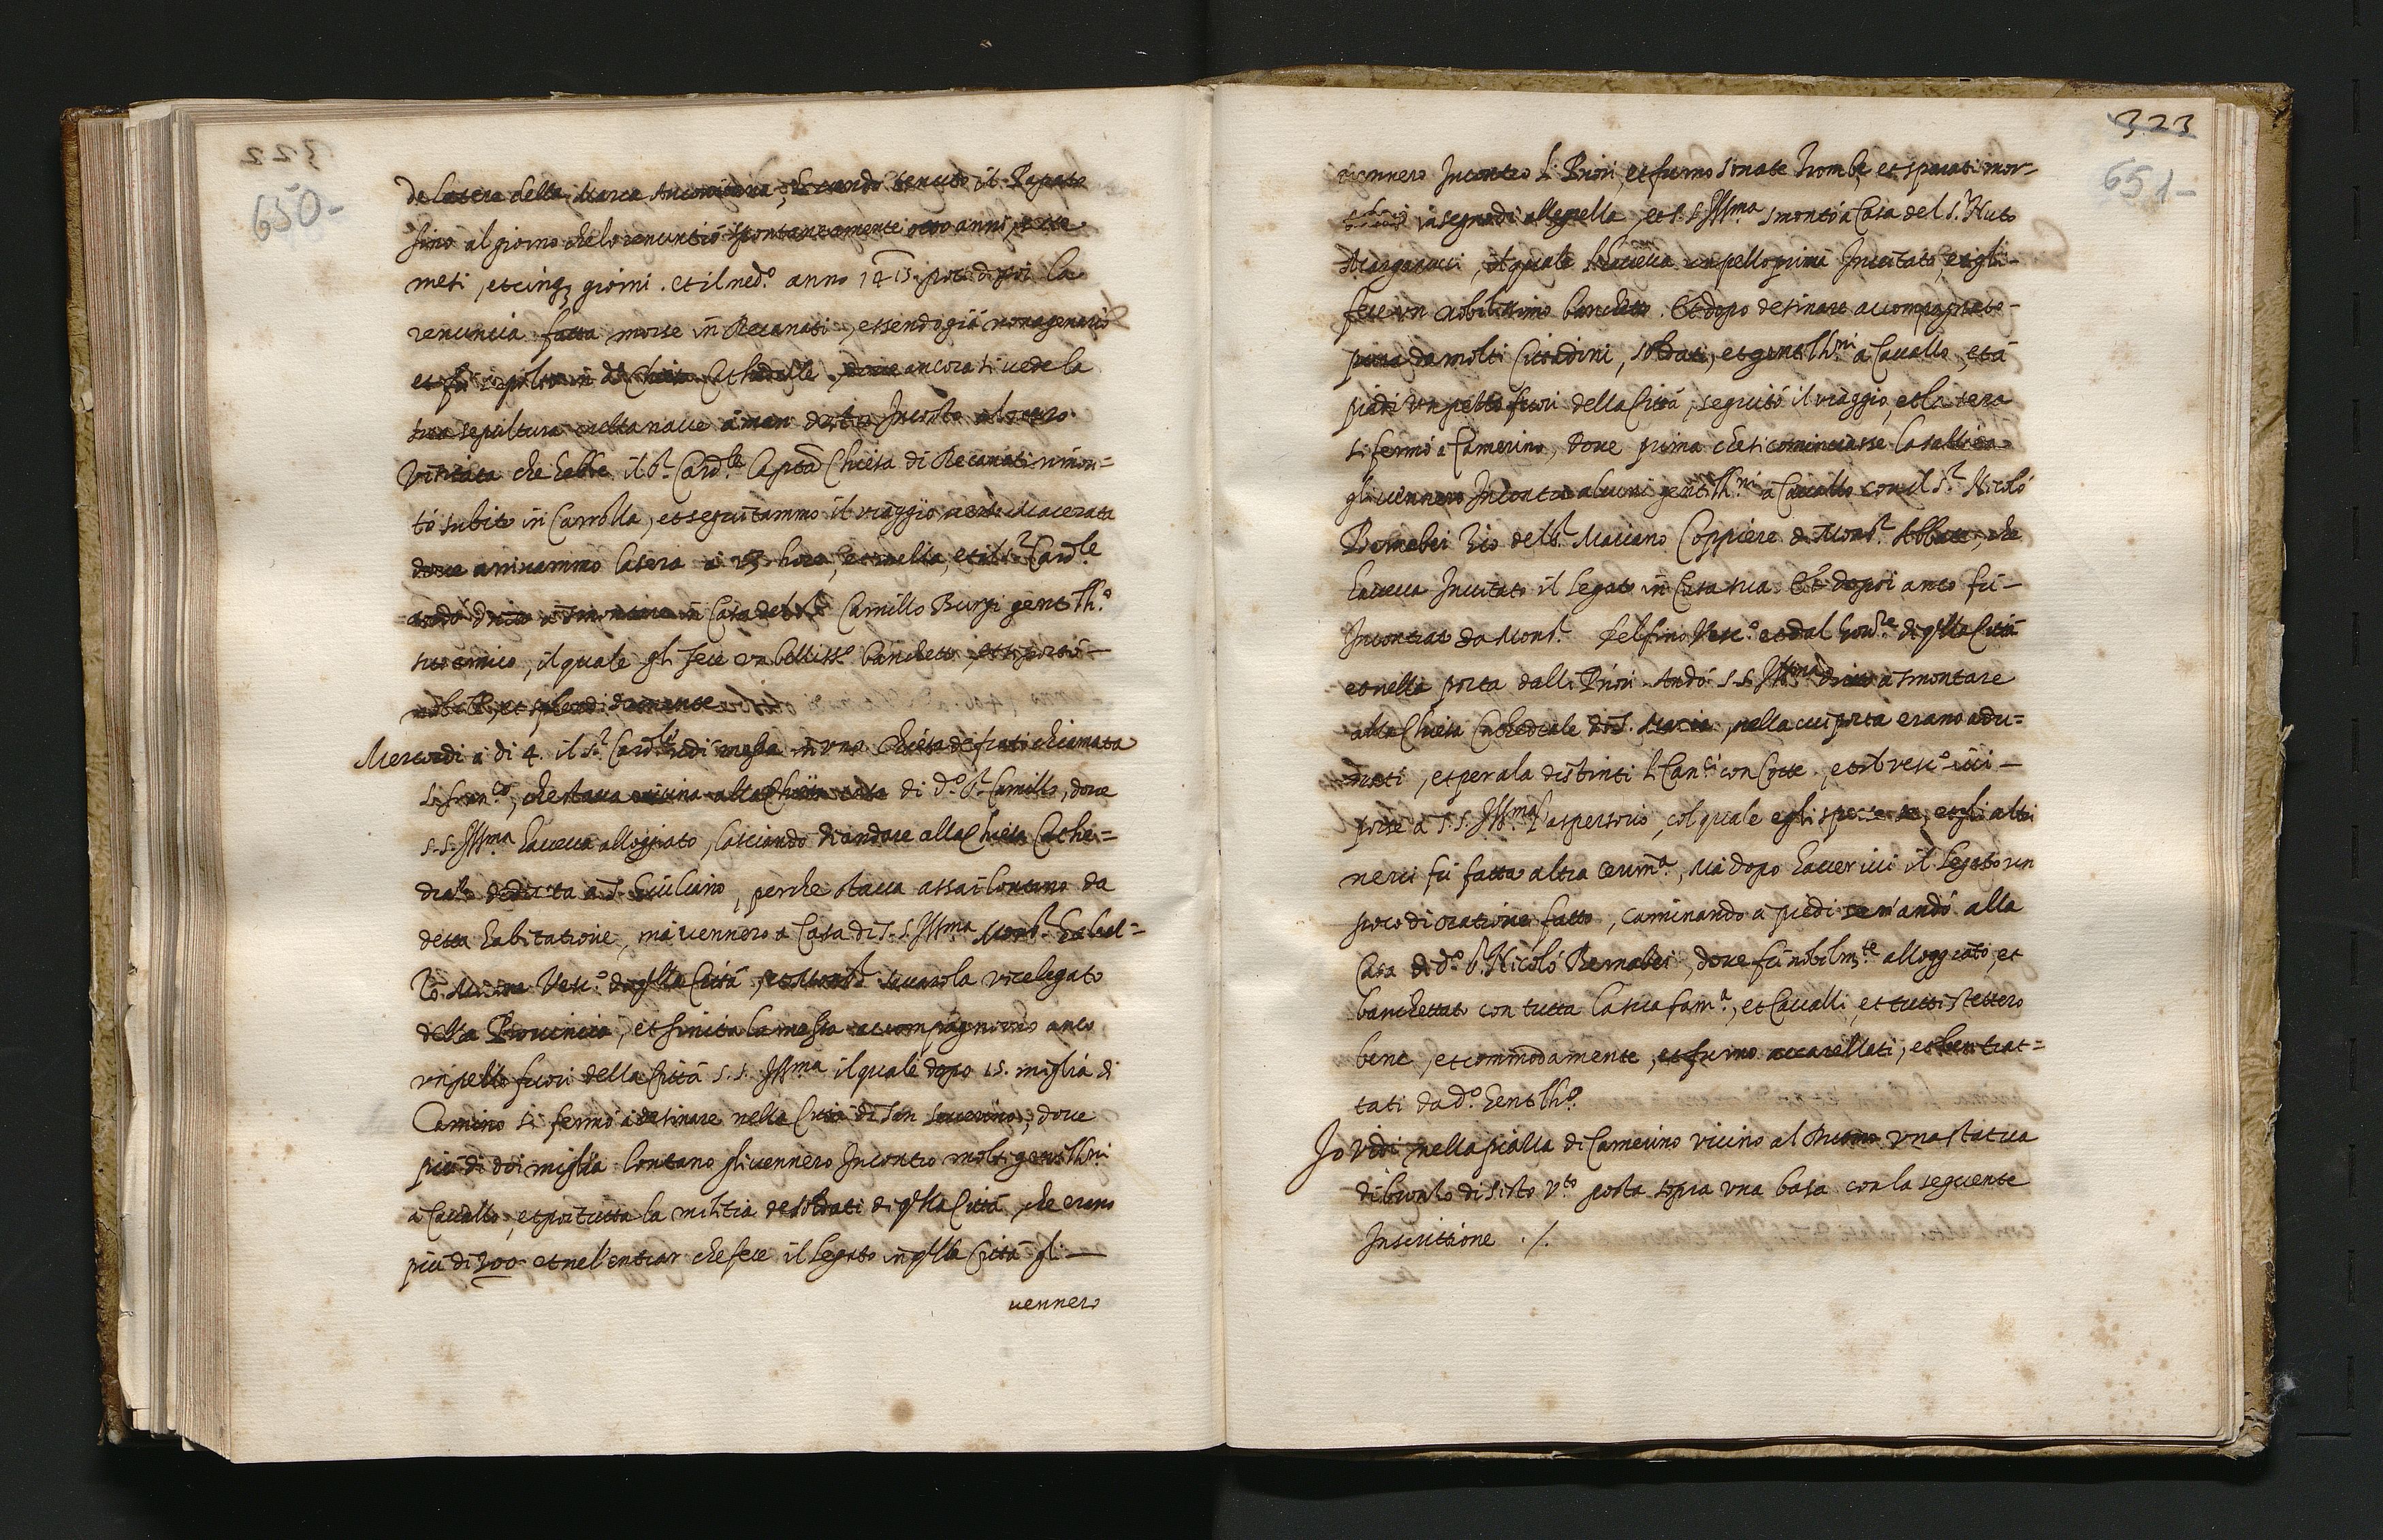 322
650-
de latere della Marca Anconitana, havendo tenuto il Papato
sino al giorno che lo renuntiò spontaneamente otto anni, sette
mesi, et cinq3 giorni. et il med.o anno 1415. poco dipoi la
renuncia fatta morse in Recanati, essendo già nonagenario
et fù sepolto in d.a Chiesa Cathedrale, dove ancora si vede la
sua sepultura nella nave à man destra Incontro al muro.
Visitata che hebbe il S.r Card.le la p.ta Chiesa di Recanati rimon=
tò subito in Carrozza, et seguitammo il viaggio verso Macerata
dove arrivammo la sera a 23 hore, et mezza, et il S.r Card.le
andò dritto à smontare in Casa del S.r Camillo Burgi gentilh.o
suo amico, il quale gli fece un belliss.o banchetto, et si portò
nobile, et splendidamente
Mercordì à di 4. il S.r Card.le udì messa in una Chiesa de frati chiamata
S. Fran.co, che stava vicina alla casa di d.o S.r Camillo, dove
S.S. Ill.ma haveva alloggiato, lasciando di andare alla Chiesa Cathe=
drale dedicata a S. Giuliano, perche stava assai lontano da
detta habitatione, mà vennero a Casa di S.S. Ill.ma Mons.r Galeaz=
zo Vesc.o di q.lla Città, et Mons.r vicelegato
della Provincia, et finita la messa accompagnorno anco
un pezzo fuori della Città S.S. Ill.ma il quale dopo 15. miglia di
Camino si fermò à desinare nella Città di San Severino, dove
più di doi miglia lontano gli vennero Incontro molti gentilh.ni
a Cavallo, et poi tutta la militia de soldati di q.lla Città, che erano
più di 300 et nel'entrar che fece il Legato in q.lla Città gli
vennero
323
651-
vennero Incontro li Priori, et furno sonate trombe, et sparati mor-
in segno di allegrezza, et S.S. Ill.ma smontò a Casa del S.r
Margarucci, il quale l'haveva un pezzo prima Invitato, et gli
fece un nobilissimo banchetto. Et dopo desinare accompagnato
prima da molti Cittadini, soldati, et gentilh.ni à Cavallo, et à
piedi un pezzo fuori della Città, seguitò il viaggio, et la sera
si fermò à Camerino, dove prima che si cominciasse la sallita
gli vennero Incontro alcuni gentilh.ni à Cavallo con il S.r Nicolò
Bernabei Zio del S.r Mariano Coppiere di Mons.r Abbate, che
haveva Invitato il Legato in Casa sua. Et dopoi anco fù
Incontrato da Mons.r Vesc.o et dal Gov.re di q.lla Città
et nella porta dalli Priori. Andò S.S. Ill.ma dritto à smontare
alla Chiesa Cathedrale di S. Maria, nella cui porta erano adu=
nati, et per ala distinti li Can.ci con Cotte, et il vesc.o ivi
porse à S.S. Ill.ma l'aspersorio, col quale egli sperse se, et gli altri
nevi fù fatta altra cerim.a, Mà dopo haver ivi il Legato un
poco di oratione fatto, caminando à piedi se n'andò alla
Casa di d.o S.r Nicolò Bernabei, dove fù nobilm.te alloggiato, et
banchettato con tutta la sua fam.a, et Cavalli, et tutti stettero
bene, et commodamente, et furno accarezzati, et ben trat=
tati da d.o Gentilh.o
Io vidi nella piazza di Camerino vicino al Duomo una statua
di bronzo di Sisto V.to posta sopra una basa con la seguente
Inscrittione ./.